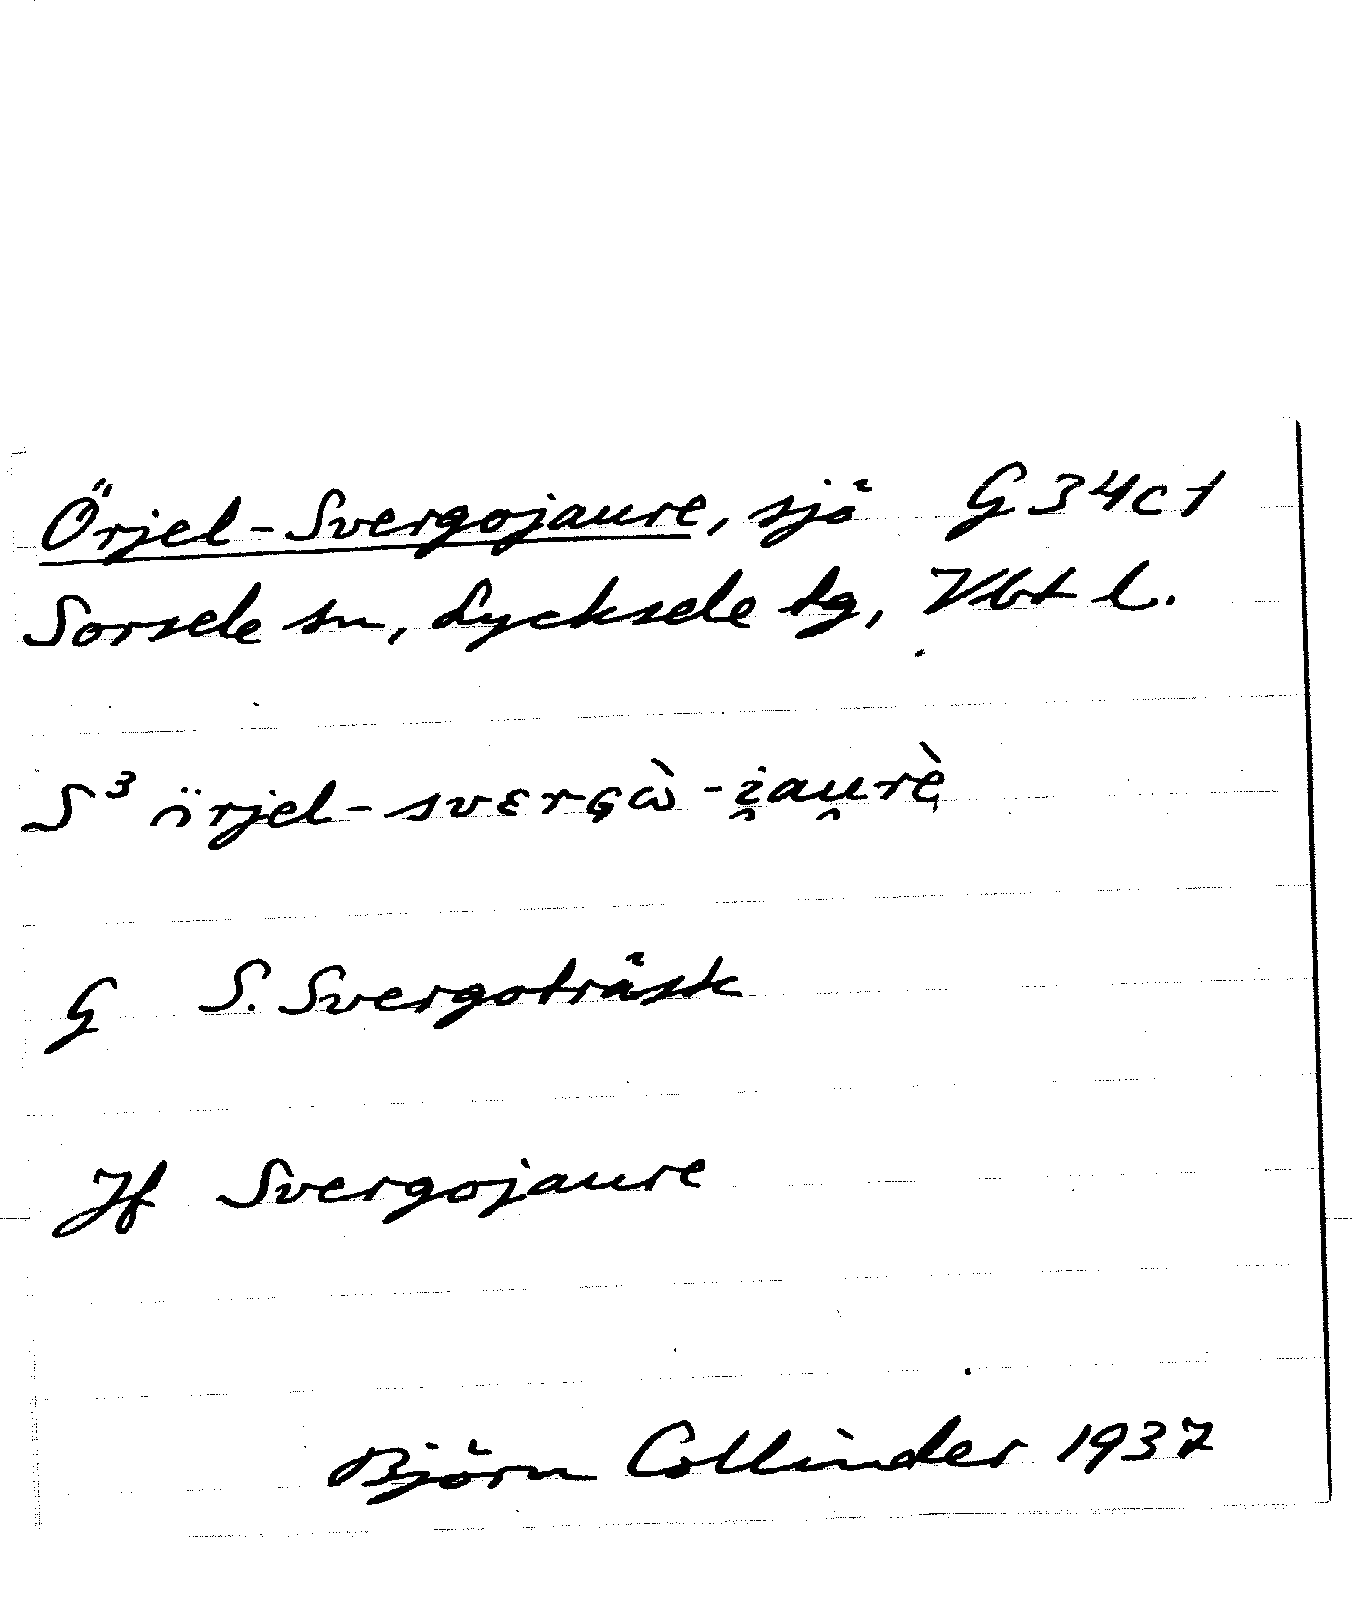 Örjel-Svergojaure, sjö G 34 c 1
Sorsele sn, Lycksele tg, Vbt l.
S³ örjel-svεrɢὼ-i̯au̯rè̩
G S. Svergoträsk
Jf Svergojaure
Björn Collinder 1937